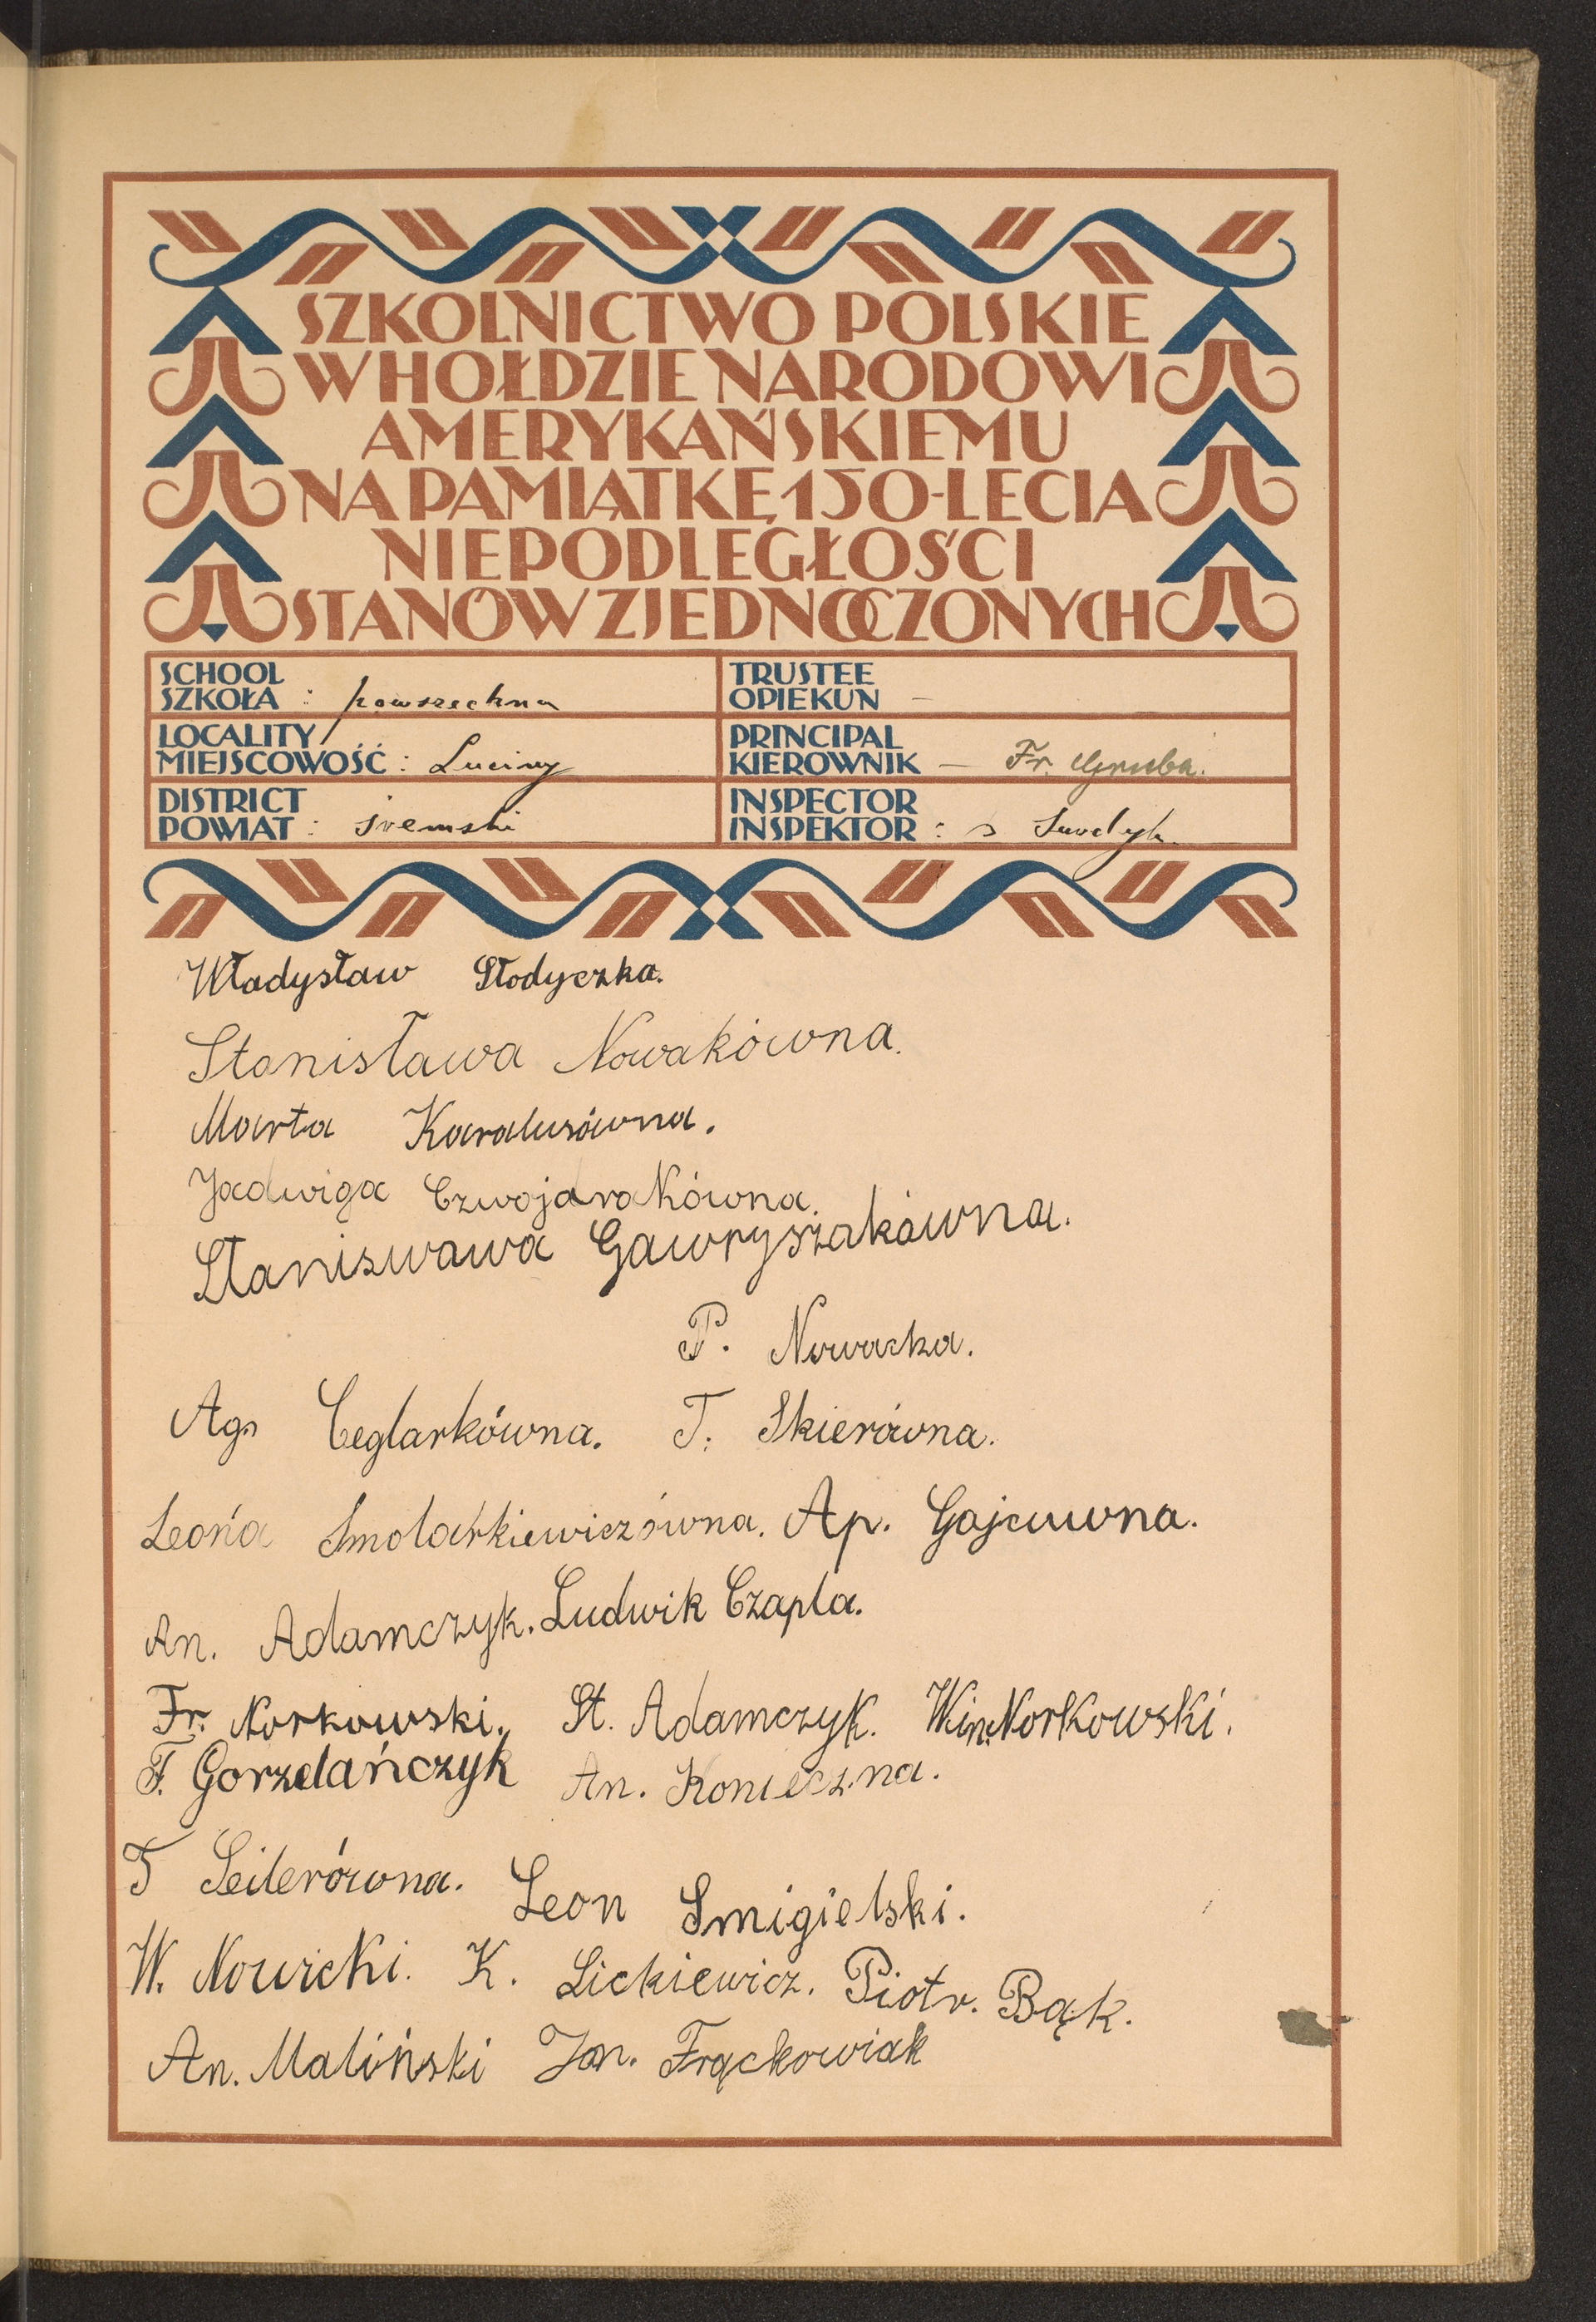 SZKOLNICTWO POLSKIE
W HOŁDZIE NARODOWI
AMERYKAŃSKIEMU
NA PAMIĄTKĘ 150-LECIA
NIEPODLEGŁOŚCI
STANÓW ZJEDNOCZONYCH
SCHOOL
SZKOŁA : powszechna
TRUSTEE
OPIEKUN –
LOCALITY
MIEJSCOWOŚĆ : Luciny
PRINCIPAL
KIEROWNIK – Fr. Gruba.
DISTRICT
POWIAT : śremski
INSPECTOR
INSPEKTOR :
Władysław Słodyczka.
Stanisława Nowakówna.
Marta Karalusówna.
Jadwiga Czwojdrakówna.
Staniswawa Gawryszakówna.
P. Nowacka.
Ag. Ceglarkówna. T. Skierówna.
Leońa Smolarkiewiczówna. Ap. Gajewwna.
An. Adamczyk. Ludwik Czapla.
Fr. Norkowski. St. Adamczyk. Win. Norkowski.
F. Gorzelańczyk An. Konieczna.
T Seilerówna. Leon Smigielski.
W. Nowicki. K. Lickiewicz. Piotr. Bąk.
An. Maliński Jan. Frąckowiak